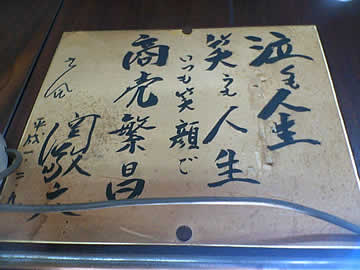 泣くも人生
笑うも人生
いつも笑顔で
商売繁昌
平成